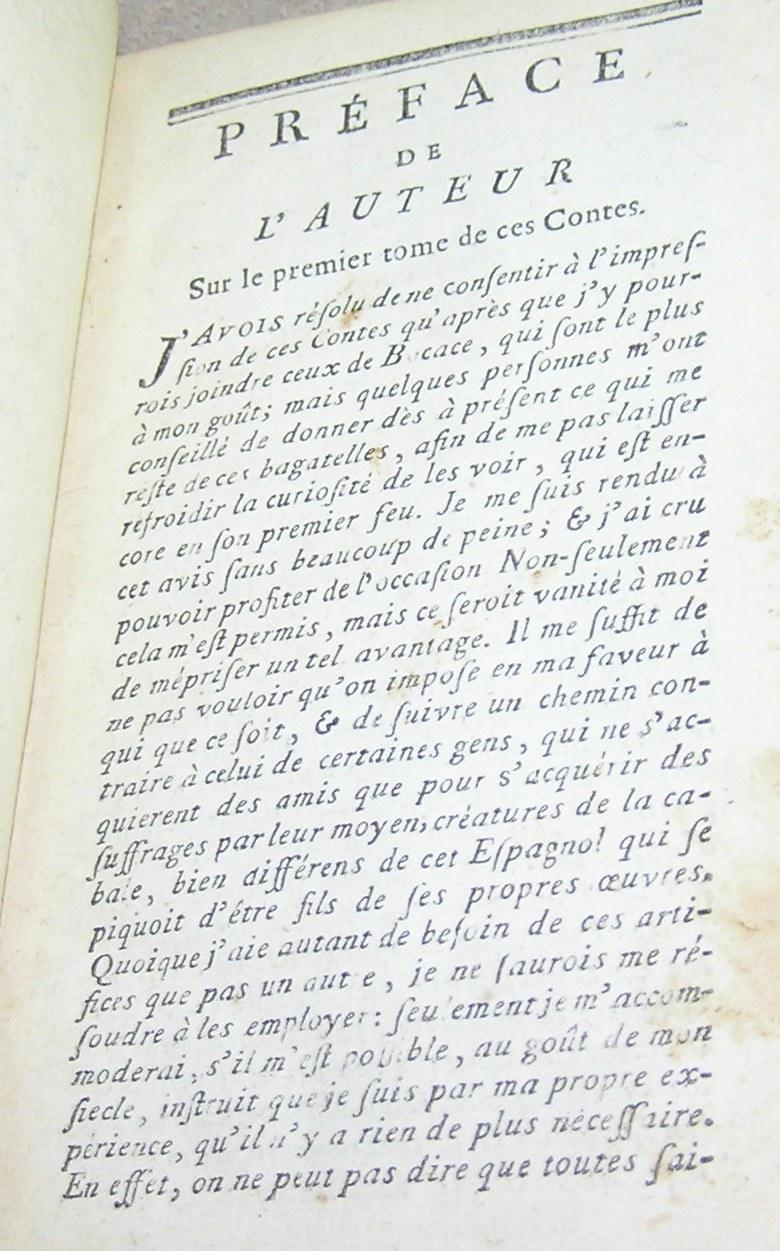 PRÉFACE
DE
L'AUTEUR
Sur le premier tome de ces Contes.
J'AVOIS réſolu de ne conſentir à l'impreſ-
ſion de ces Contes qu'après que j'y pour-
rois joindre ceux de Bocace, qui ſont le plus
à mon goût; mais quelques perſonnes m'ont
conſeillé de donner dès à préſent ce qui me
reſte de ces bagatelles, afin de me pas laiſſer
refroidir la curioſité de les voir, qui eſt en-
core en ſon premier feu. Je me ſuis rendu à
cet avis ſans beaucoup de peine; & j'ai cru
pouvoir profiter de l'occaſion Non-ſeulement
cela m'eſt permis, mais ce ſeroit vanité à moi
de mépriſer un tel avantage. Il me ſuffit de
ne pas vouloir qu'on impoſe en ma faveur à
qui que ce ſoit, & de ſuivre un chemin con-
traire à celui de certaines gens, qui ne s'ac-
quierent des amis que pour s'acquérir des
ſuffrages par leur moyen, créatures de la ca-
bale, bien différens de cet Eſpagnol qui ſe
piquoit d'être fils de ſes propres œuvres.
Quoique j'aie autant de beſoin de ces arti-
fices que pas un autre, je ne ſaurois me ré-
ſoudre à les employer: ſeulement je m'accom-
moderai, s'il m'eſt poſſible, au goût de mon
ſiecle, inſtruit que je ſuis par ma propre ex-
périence, qu'il n'y a rien de plus néceſſaire.
En effet, on ne peut pas dire que toutes ſai-